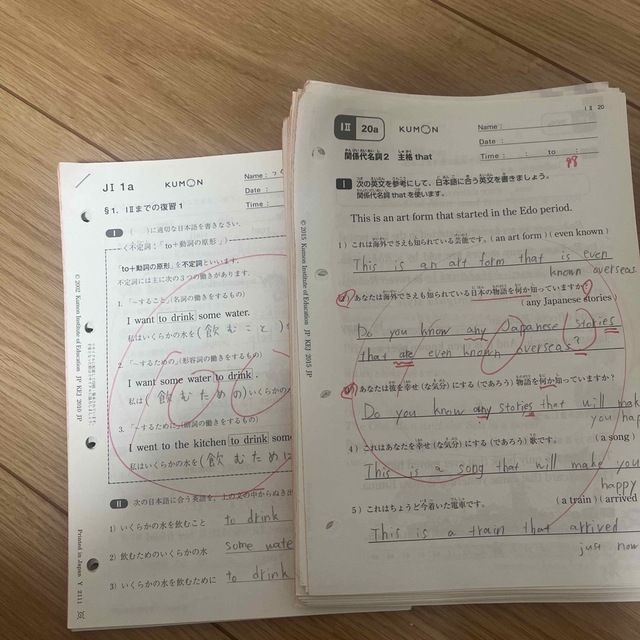 JI 1a
KUMON
Name :
Date :
Time :
§1. IⅡまでの復習 1
I ( )に適切な日本語を書きなさい。
〈不定詞：「to+動詞の原形」〉
「to+動詞の原形」を不定詞といいます。
不定詞には主に次の3つの働きがあります。
1. 「～すること」(名詞の働きをするもの)
I want to drink some water.
私はいくらかの水を(飲むこと)
2. 「～するための」(形容詞の働きをするもの)
I want some water to drink.
私は(飲むための)いくらかの
3. 「～するために」(副詞の働きをするもの)
I went to the kitchen to drink som
私はいくらかの水を(飲むために
Ⅱ 次の日本語に合う英語を、上の文の中からぬき出
1) いくらかの水を飲むこと to drink
2) 飲むためのいくらかの水 some wate
3) いくらかの水を飲むために to drink
© 2002 Kumon Institute of Education JP KEJ 2010 JP
Printed in Japan Y 2111
IⅡ 20
IⅡ 20a
KUMON
Name :
Date :
Time : to :
関係代名詞2 主格 that
I 次の英文を参考にして、日本語に合う英文を書きましょう。
関係代名詞 that を使います。
This is an art form that started in the Edo period.
1) これは海外でさえも知られている芸能です。(an art form) (even known)
This is an art form that is even
known overseas
2) あなたは海外でさえも知られている日本の物語を何か知っていますか?
(any Japanese stories)
Do you know any Japanese stories
that are even known overseas?
3) あなたは彼を幸せ(な気分)にする(であろう)物語を何か知っていますか?
Do you know any stories that will mak
you hap
4) これはあなたを幸せ(な気分)にする(であろう)歌です。 (a song)
This is a song that will make you
happy
5) これはちょうど今着いた電車です。 (a train) (arrived
This is a train that arrived
just now
© 2015 Kumon Institute of Education JP KEJ 2015 JP
100